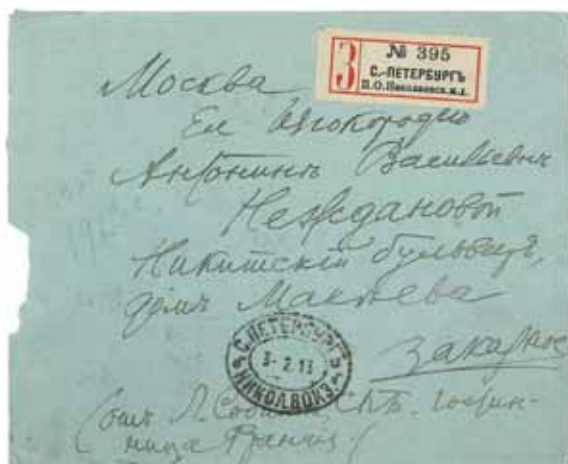 З
№ 395
С.-ПЕТЕРБУРГЪ
П.О. Николаевск. ж.д.
Москва
Ея
Антонинѣ Васильевнѣ
Неждановой
Никитскій бульваръ,
домъ
С.ПЕТЕРБУРГЪ
3-2.13
НИКОЛ.ВОКЗ.
заказное
(отъ Л. СПБ. гостин-
ница